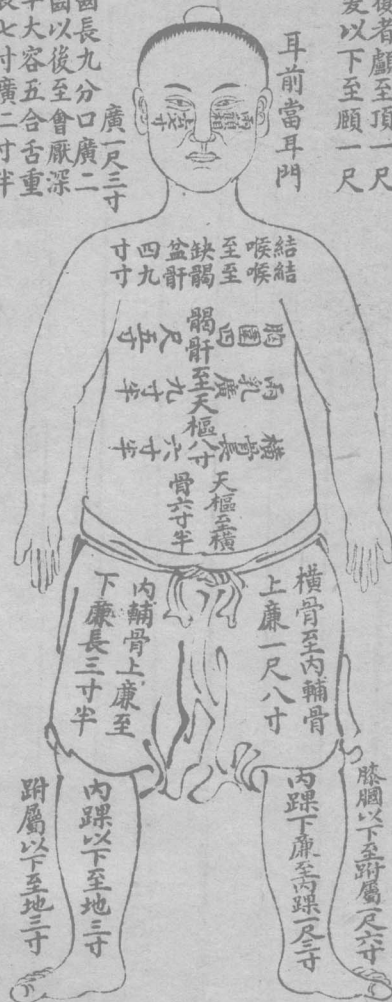 者顱至頂一尺
髮以下至頤一尺
耳前當耳門
廣一尺三寸
長九分口廣二
以後至會厭深
大容五合舌重
七寸廣二寸半
兩顴
相去七寸
結喉至缺盆四寸
結喉至𩩲骭九寸
胸圍四尺五寸
𩩲骭至天樞八寸
兩乳廣九寸半
橫骨長六寸半
天樞至橫
骨六寸半
橫骨至內輔骨
上廉一尺八寸
內輔骨上廉至
下廉長三寸半
膝膕以下至跗屬一尺六寸
內踝下廉至內踝一尺三寸
內踝以下至地三寸
跗屬以下至地三寸